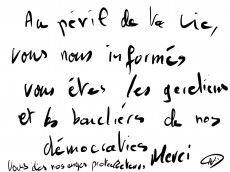 Au péril de la vie,
vous nous informés
vous êtes les gardiens
et les bouclières de nos
démocraties Merci
vous êtes nos anges protecteurs